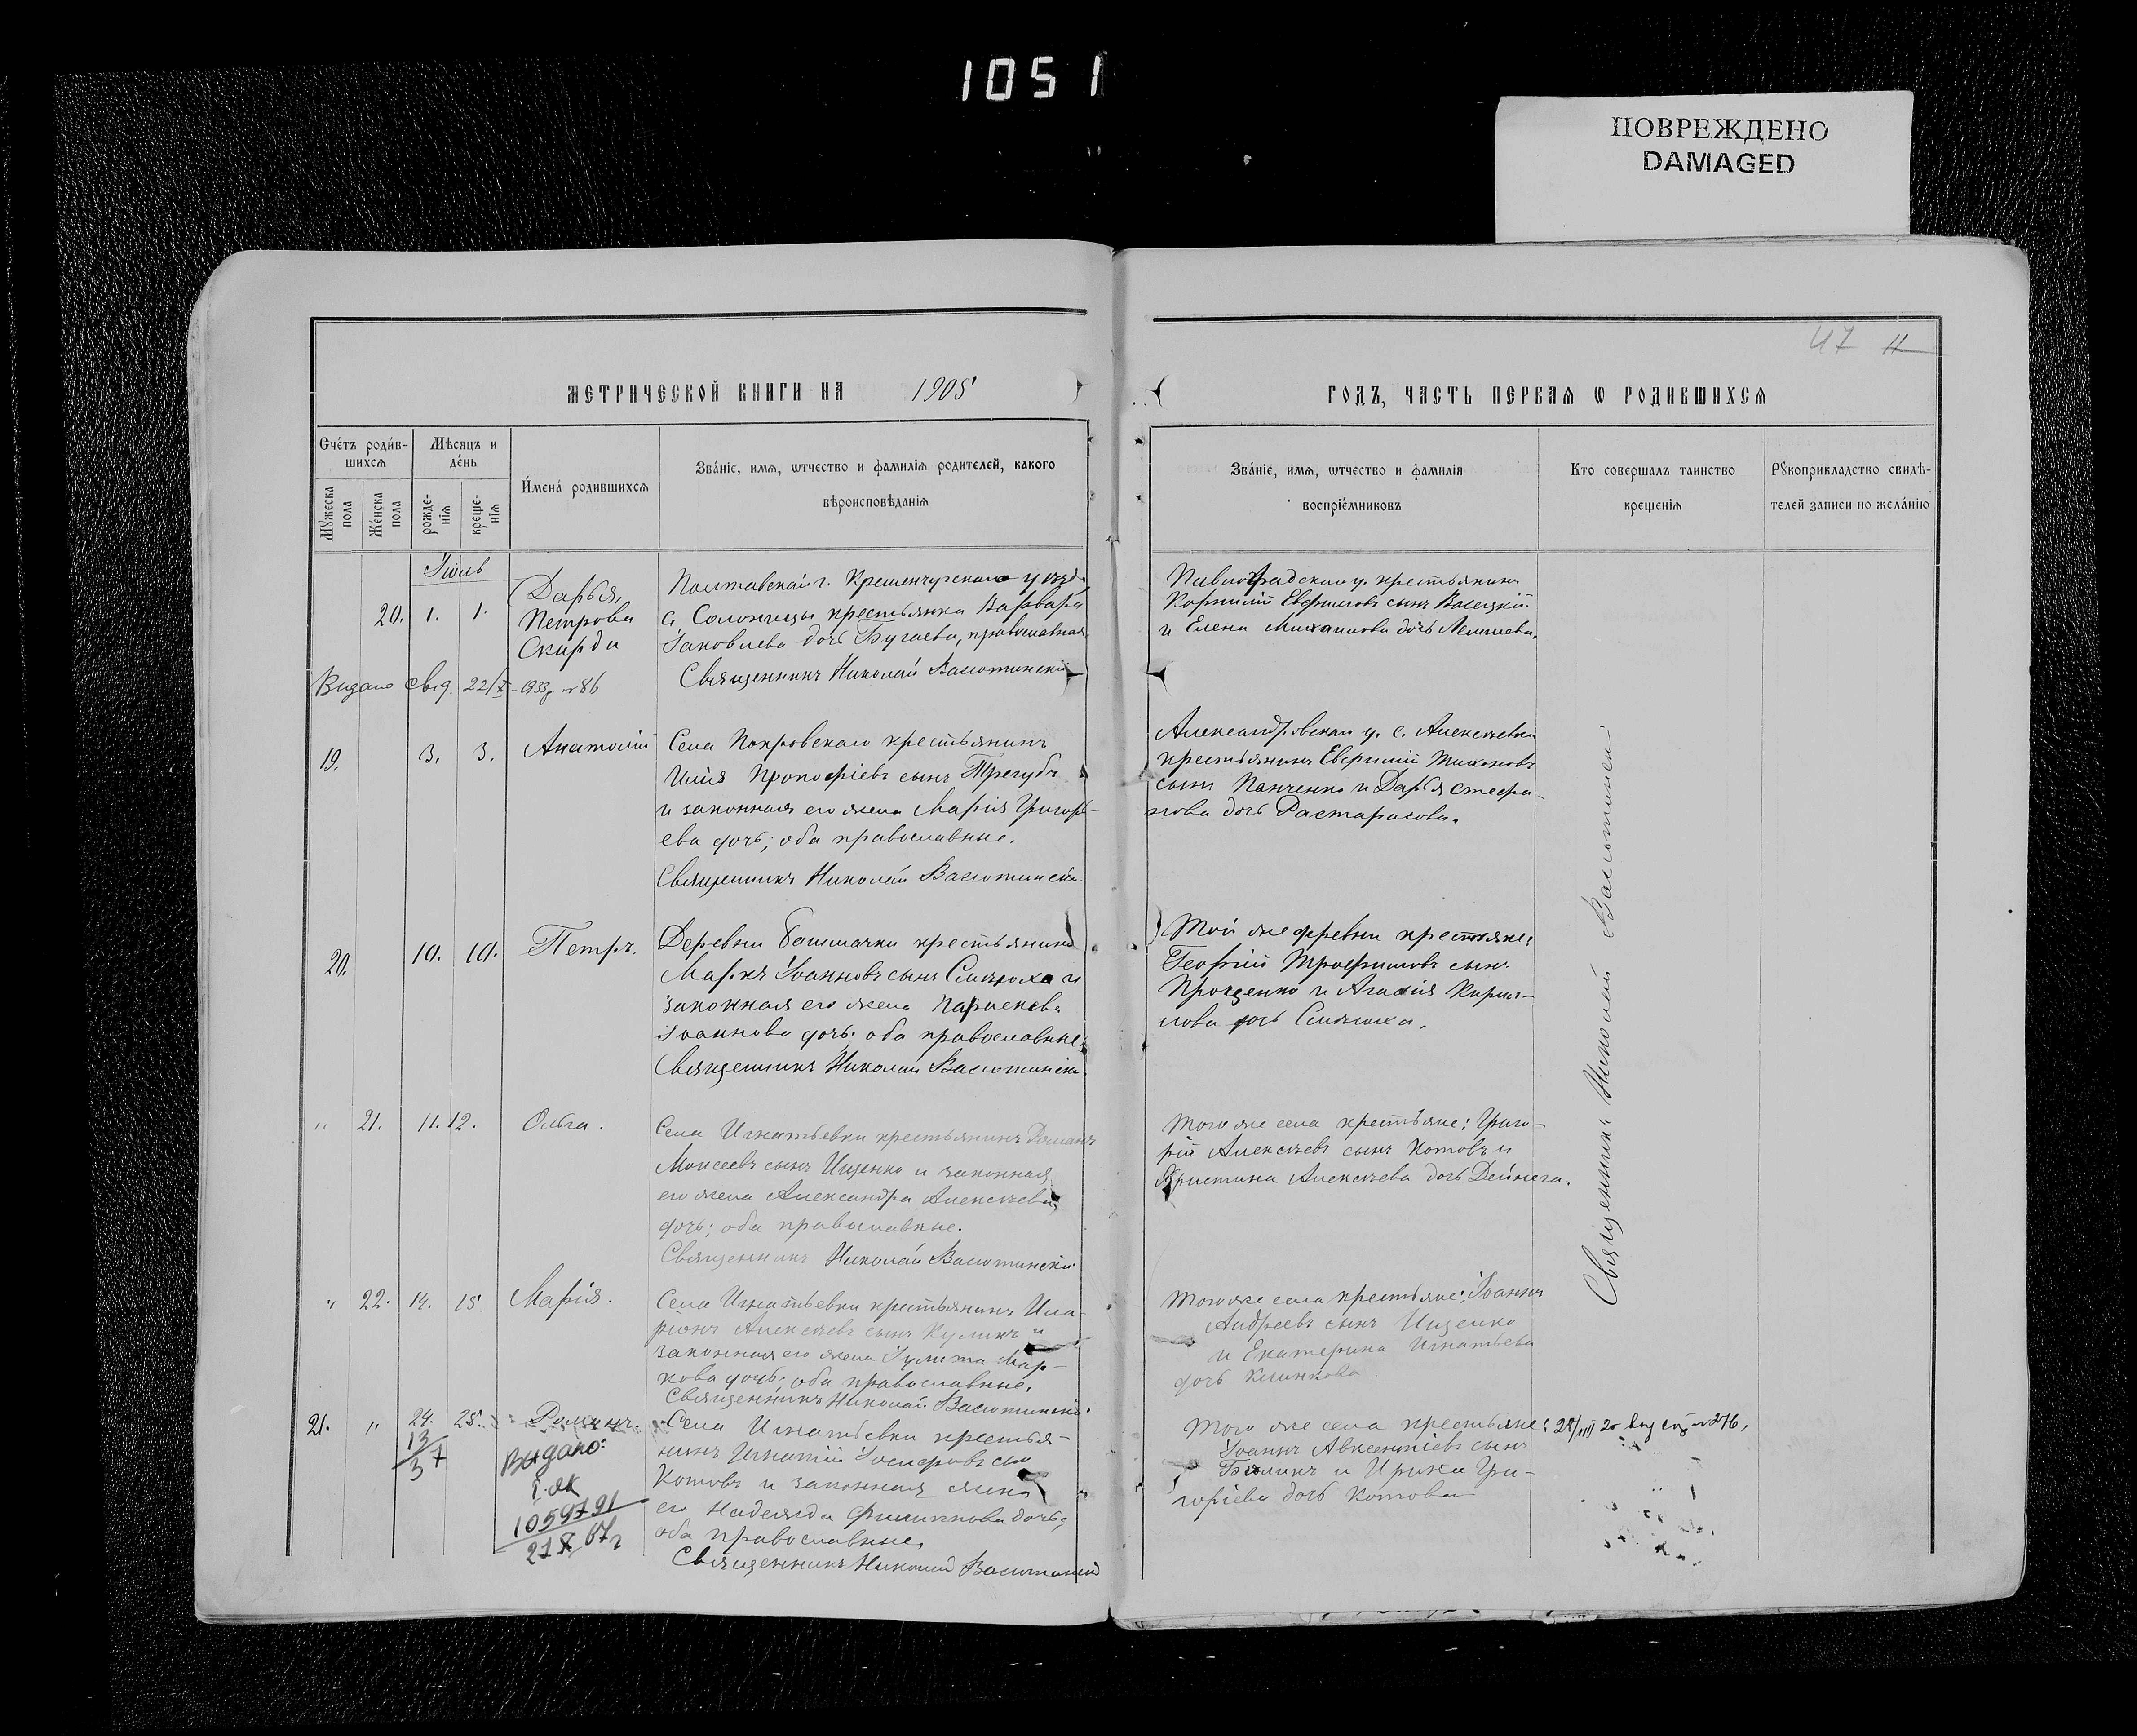 1051
ПОВРЕЖДЕНО
DAMAGED
47 11
МЕТРИЧЕСКОЙ КНИГИ НА 1905
ГОДЪ, ЧАСТЬ ПЕРВАѦ Ѡ РОДИВШИХСѦ
Счéтъ роди́в-
шихсѧ
Мѣсяцъ и
дéнь
И́мена́ родившихсѧ
Звáнїе, имѧ, ѡтчество и фамилїѧ родителей, какого
вѣроисповѣданїѧ
Мꙋжеска
пола
Жéнска
пола
рожде-
нїѧ
креще-
нїѧ
Звáнїе, имѧ, ѡтчество и фамилїѧ
воспрїéмниковъ
Кто совершалъ таинство
крещенїѧ
Рꙋкоприкладство свидѣ-
телей записи по желáнїю
Іюль
20. 1. 1.
Дарья,
Петрова
Скирда
Полтавской г. Кременчугскаго уѣзда
с. Солоницы крестьянка Варвара
Іаковлева дочь Бугаева, православная.
Священникъ Николай Васютинскій
Видано свід. 22/X-1933р. №86
Павлоградскаго у. крестьянинъ
Корнилій Евфимовъ сынъ
и Елена Михаилова дочь
19. 3. 3. Анатолій
Села Покровскаго крестьянинъ
Илія Прокофіевъ сынъ Трегубъ
и законная его жена Марія Григорь-
ева дочь; оба православные.
Священникъ Николай Васютинскій
Александровскаго у. с. Алексѣевки
крестьянинъ Евфимій Тихоновъ
сынъ Панченко и Дарья Стефа-
нова дочь Растарасова.
20. 10. 10. Петръ.
Деревни Башмачки крестьянинъ
Маркъ Іоанновъ сынъ и
законная его жена Параскева
Іоаннова дочь; оба православные.
Священникъ Николай Васютинскій
Той же деревни крестьяне:
Георгій Трофимовъ сынъ
Проценко и Агафія Кирил-
лова дочь
" 21. 11. 12. Ольга.
Села Игнатьевки крестьянинъ Романъ
Моисеевъ сынъ Ищенко и законная
его жена Александра Алексѣева
дочь; оба православные.
Священникъ Николай Васютинскій
Того же села крестьяне: Григо-
рій Алексѣевъ сынъ Котовъ и
Христина Алексѣева дочь Дейнега.
" 22. 14. 15. Марія.
Села Игнатьевки крестьянинъ Ила-
ріонъ Алексѣевъ сынъ Куликъ и
законная его жена Іулита Мар-
кова дочь; оба православные.
Священникъ Николай Васютинскій
Того же села крестьяне: Іоаннъ
Андреевъ сынъ Ищенко
и Екатерина Игнатьева
дочь Климкова
21. " 24. 25. Романъ.
Видано:
1059791
27 X 67г
13
3 7
Села Игнатьевки крестья-
нинъ Игнатій Іосифовъ сынъ
Котовъ и законная жена
его Надежда Филиппова дочь,
оба православные.
Священникъ Николай Васютинскій
Того же села крестьяне:
Іоаннъ Авксентіевъ сынъ
Бѣликъ и Ирина Гри-
горіева дочь Котова
Священникъ Николай Васютинскій